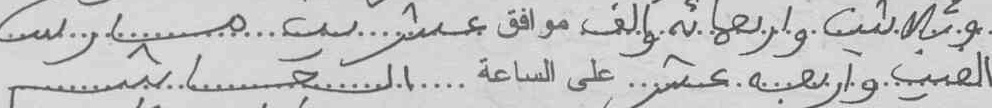 وثلاثين واربعمائه والف موافق عشرين مارس
الفين واربعه عشر على الساعة العاشر